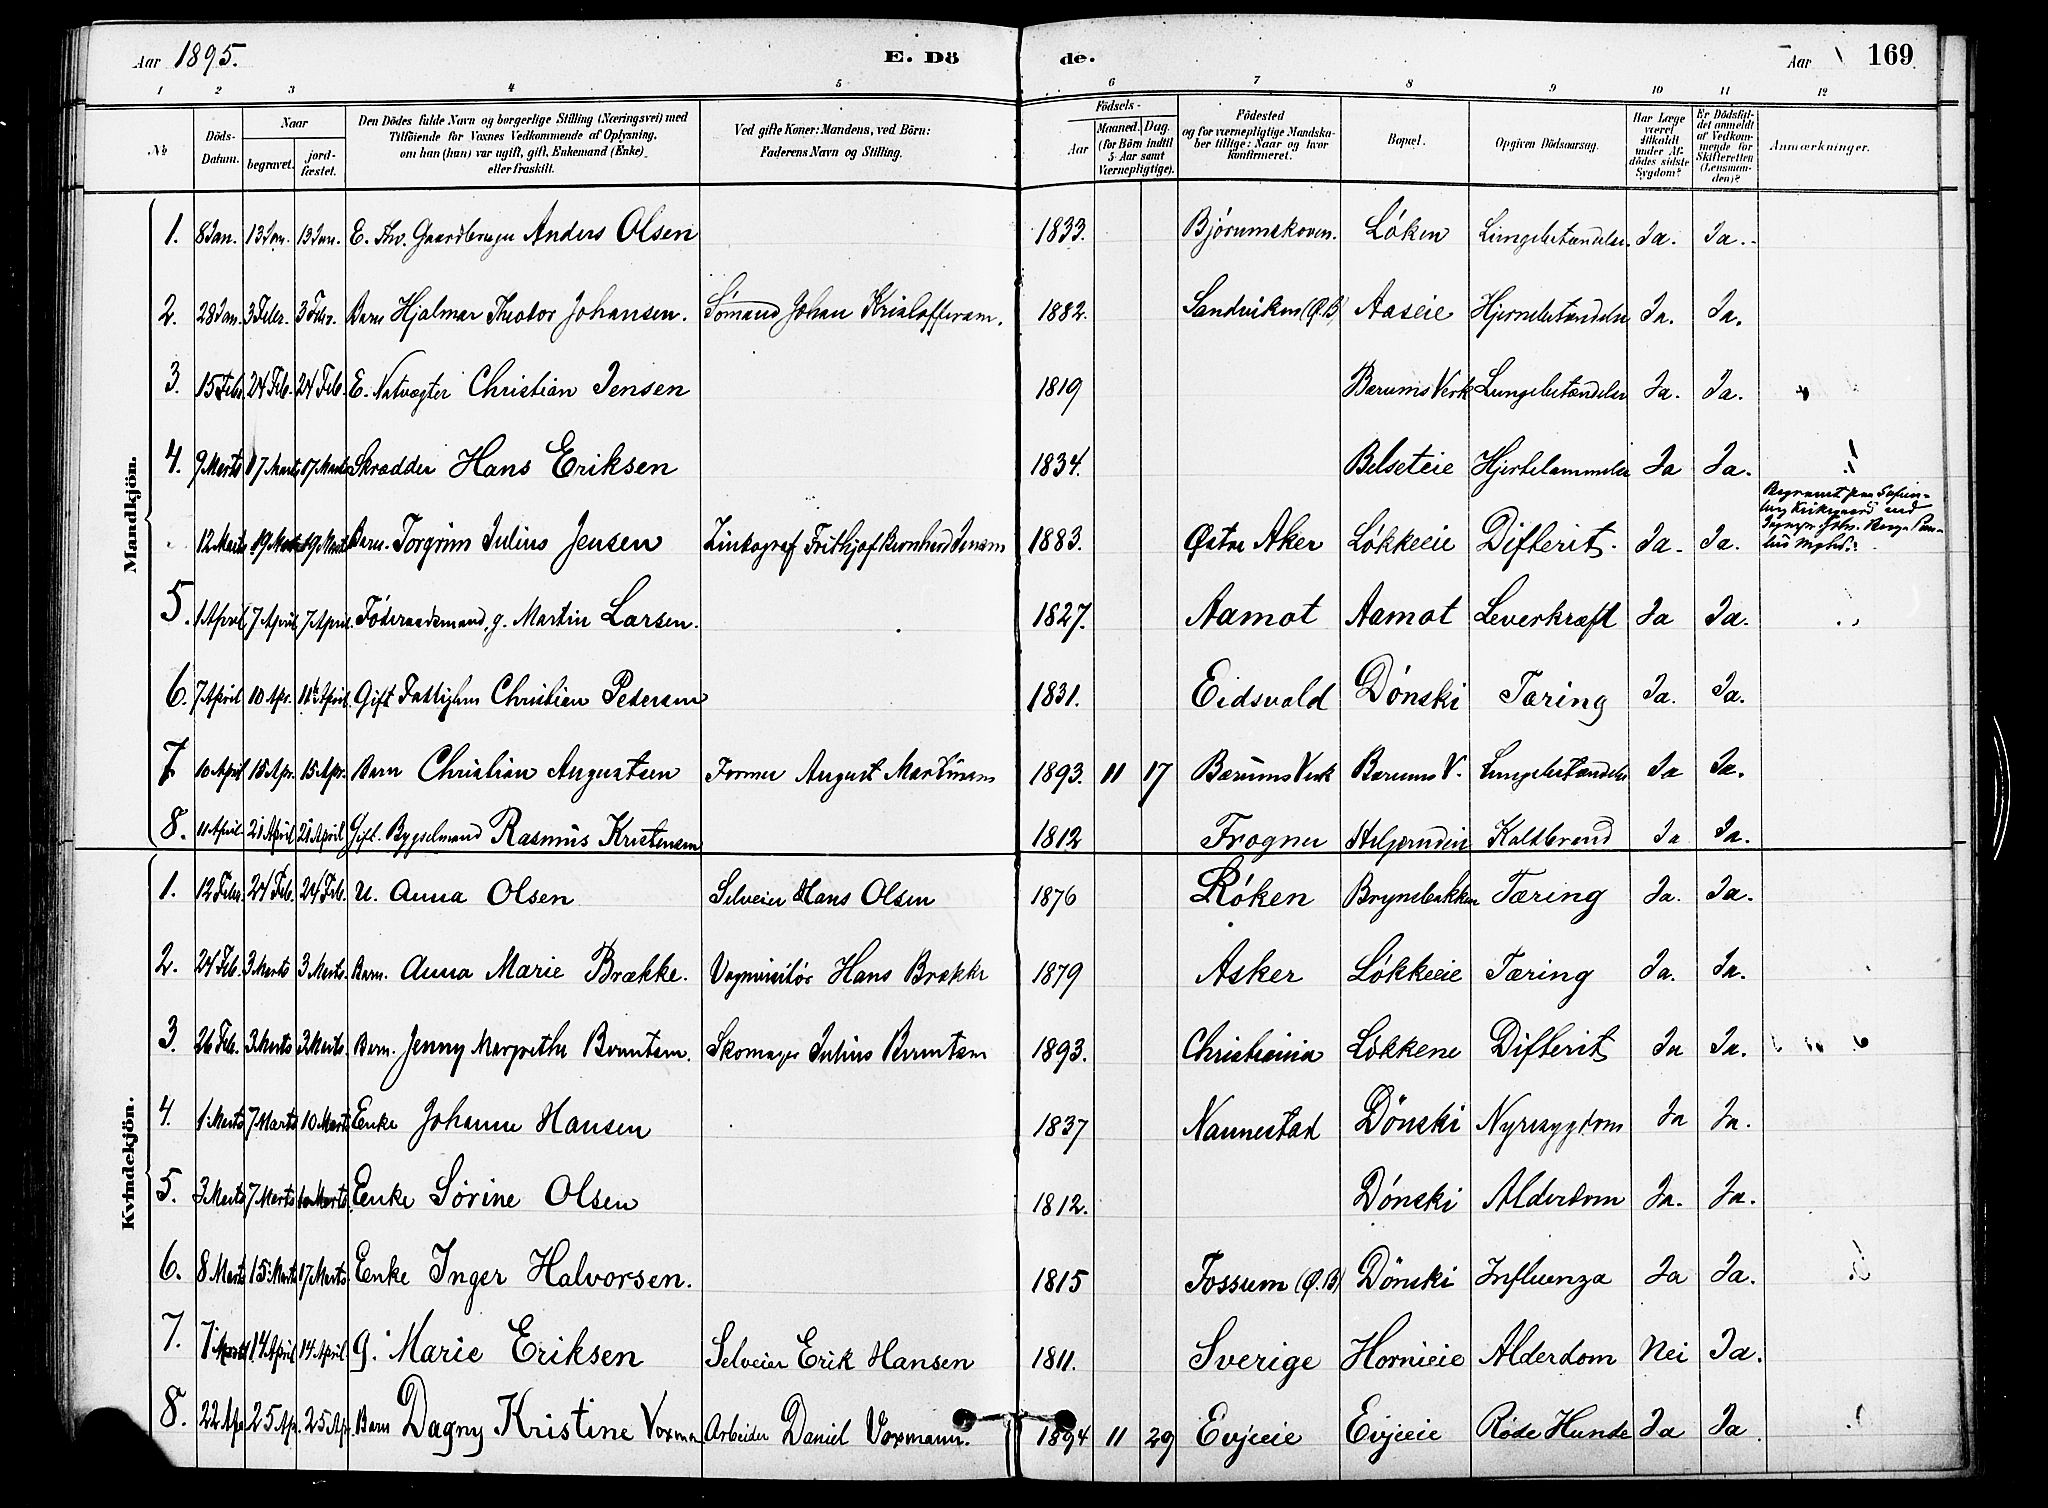 Aar 1895. E. Dö de. Aar 169
1 2 3 4 5 6 7 8 9 10 11 12
№ Döds-Datum. Naar begravet. jordfæstet. Den Dödes fulde Navn og borgerlige Stilling (Næringsvei) med Tilföiende for Voxnes Vedkommende af Oplysning, om han (hun) var ugift, gift, Enkemand (Enke) eller fraskilt. Ved gifte Koner: Mandens, ved Börn: Faderens Navn og Stilling. Födsels- Aar Maaned. Dag. (for Börn indtil 5 Aar samt Værnepligtige). Födested og for værnepligtige Mandskaber tillige: Naar og hvor konfirmeret. Bopæl. Opgiven Dödsaarsag. Har Læge været tilkaldt under Afdödes sidste Sygdom? Er Dödsfaldet anmeldt af Vedkommende for Skifteretten (Lensmanden)? Anmærkninger.
Mandkjön.
1. 8 Jan. 13 Jan. 13 Jan. E. Fhv. Gaardbruger Anders Olsen 1833. Bjørumskoven. Løken Lungebetændelse. Ja. Ja.
2. 28 Jan. 3 Febr. 3 Febr. Barn Hjalmar Theodor Johansen. Sømand Johan Kristoffersen. 1882. Sandviken (Ø.B) Aaseie Hjernebetændelse Ja. Ja.
3. 15 Feb. 24 Feb. 24 Feb. E. Natvægter Christian Jensen 1819 Bærums Verk Lungebetændelse Ja. Ja.
4. 9 Marts 17 Marts 17 Marts Skrædder Hans Eriksen 1834. Belseteie Hjertelammelse Ja Ja.
12 Marts 19 Marts 19 Marts Barn. Torgrim Julius Jensen Zinkograf Frithjof Bernhard Jensen 1883. Østre Aker Løkkeeie Difterit. Ja. Ja. Begravet paa
5. 1 April 7 April. 7 April. Føderaadsmand, g. Martin Larsen. 1827. Aamot Aamot Leverkræft Ja Ja.
6. 7 April 10 Apr. 11 April. Gift Fattiglem Christian Pedersen 1831. Eidsvold Dønski Tæring Ja. Ja.
7 10 April 15 Apr. 15 Apr. Barn Christian Augustsen Former August Martinsen 1893. 11 17 Bærums Verk Bærums V. Lungebetændelse Ja Ja.
8. 11 April. 21 April 21 April. Gift. Bygselmand Rasmus Kristensen 1812 Frogner Koldbrand Ja Ja.
Kvindekjön.
1. 12 Febr. 24 Feb. 24 Feb. U. Anna Olsen Selveier Hans Olsen 1876 Røken Brynsbakken Tæring Ja. Ja.
2. 24 Feb. 3 Marts 3 Marts. Barn. Anna Marie Brække. Vognvisitør Hans Brække 1879 Asker Løkkeeie Tæring Ja. Ja.
3. 26 Feb. 3 Marts 3 Marts. Barn. Jenny Margrethe Berntsen. Skomager Julius Berntsen 1893. Christiania Løkkene Difterit Ja Ja.
4. 1 Marts 7 Marts 10 Marts Enke Johanne Hansen 1837 Nannestad Dønski Nyresygdom Ja Ja.
5. 3 Marts 7 Marts 10 Marts. Enke Sørine Olsen 1812. Dønski Alderdom Ja. Ja.
6. 8 Marts 15 Marts 17 Marts. Enke Inger Halvorsen. 1815 Fossum (Ø.B) Dønski Influenza Ja Ja.
7. 7 14 April 14 April G. Marie Eriksen Selveier Erik Hansen 1811. Sverige Hornieie Alderdom Nei Ja.
8. 22 Apr 25 Ap. 25 Ap. Barn Dagny Kristine Voxman Arbeider Daniel Voxmann. 1894 11 29 Evjeeie Evjeeie Røde Hunde Ja Ja